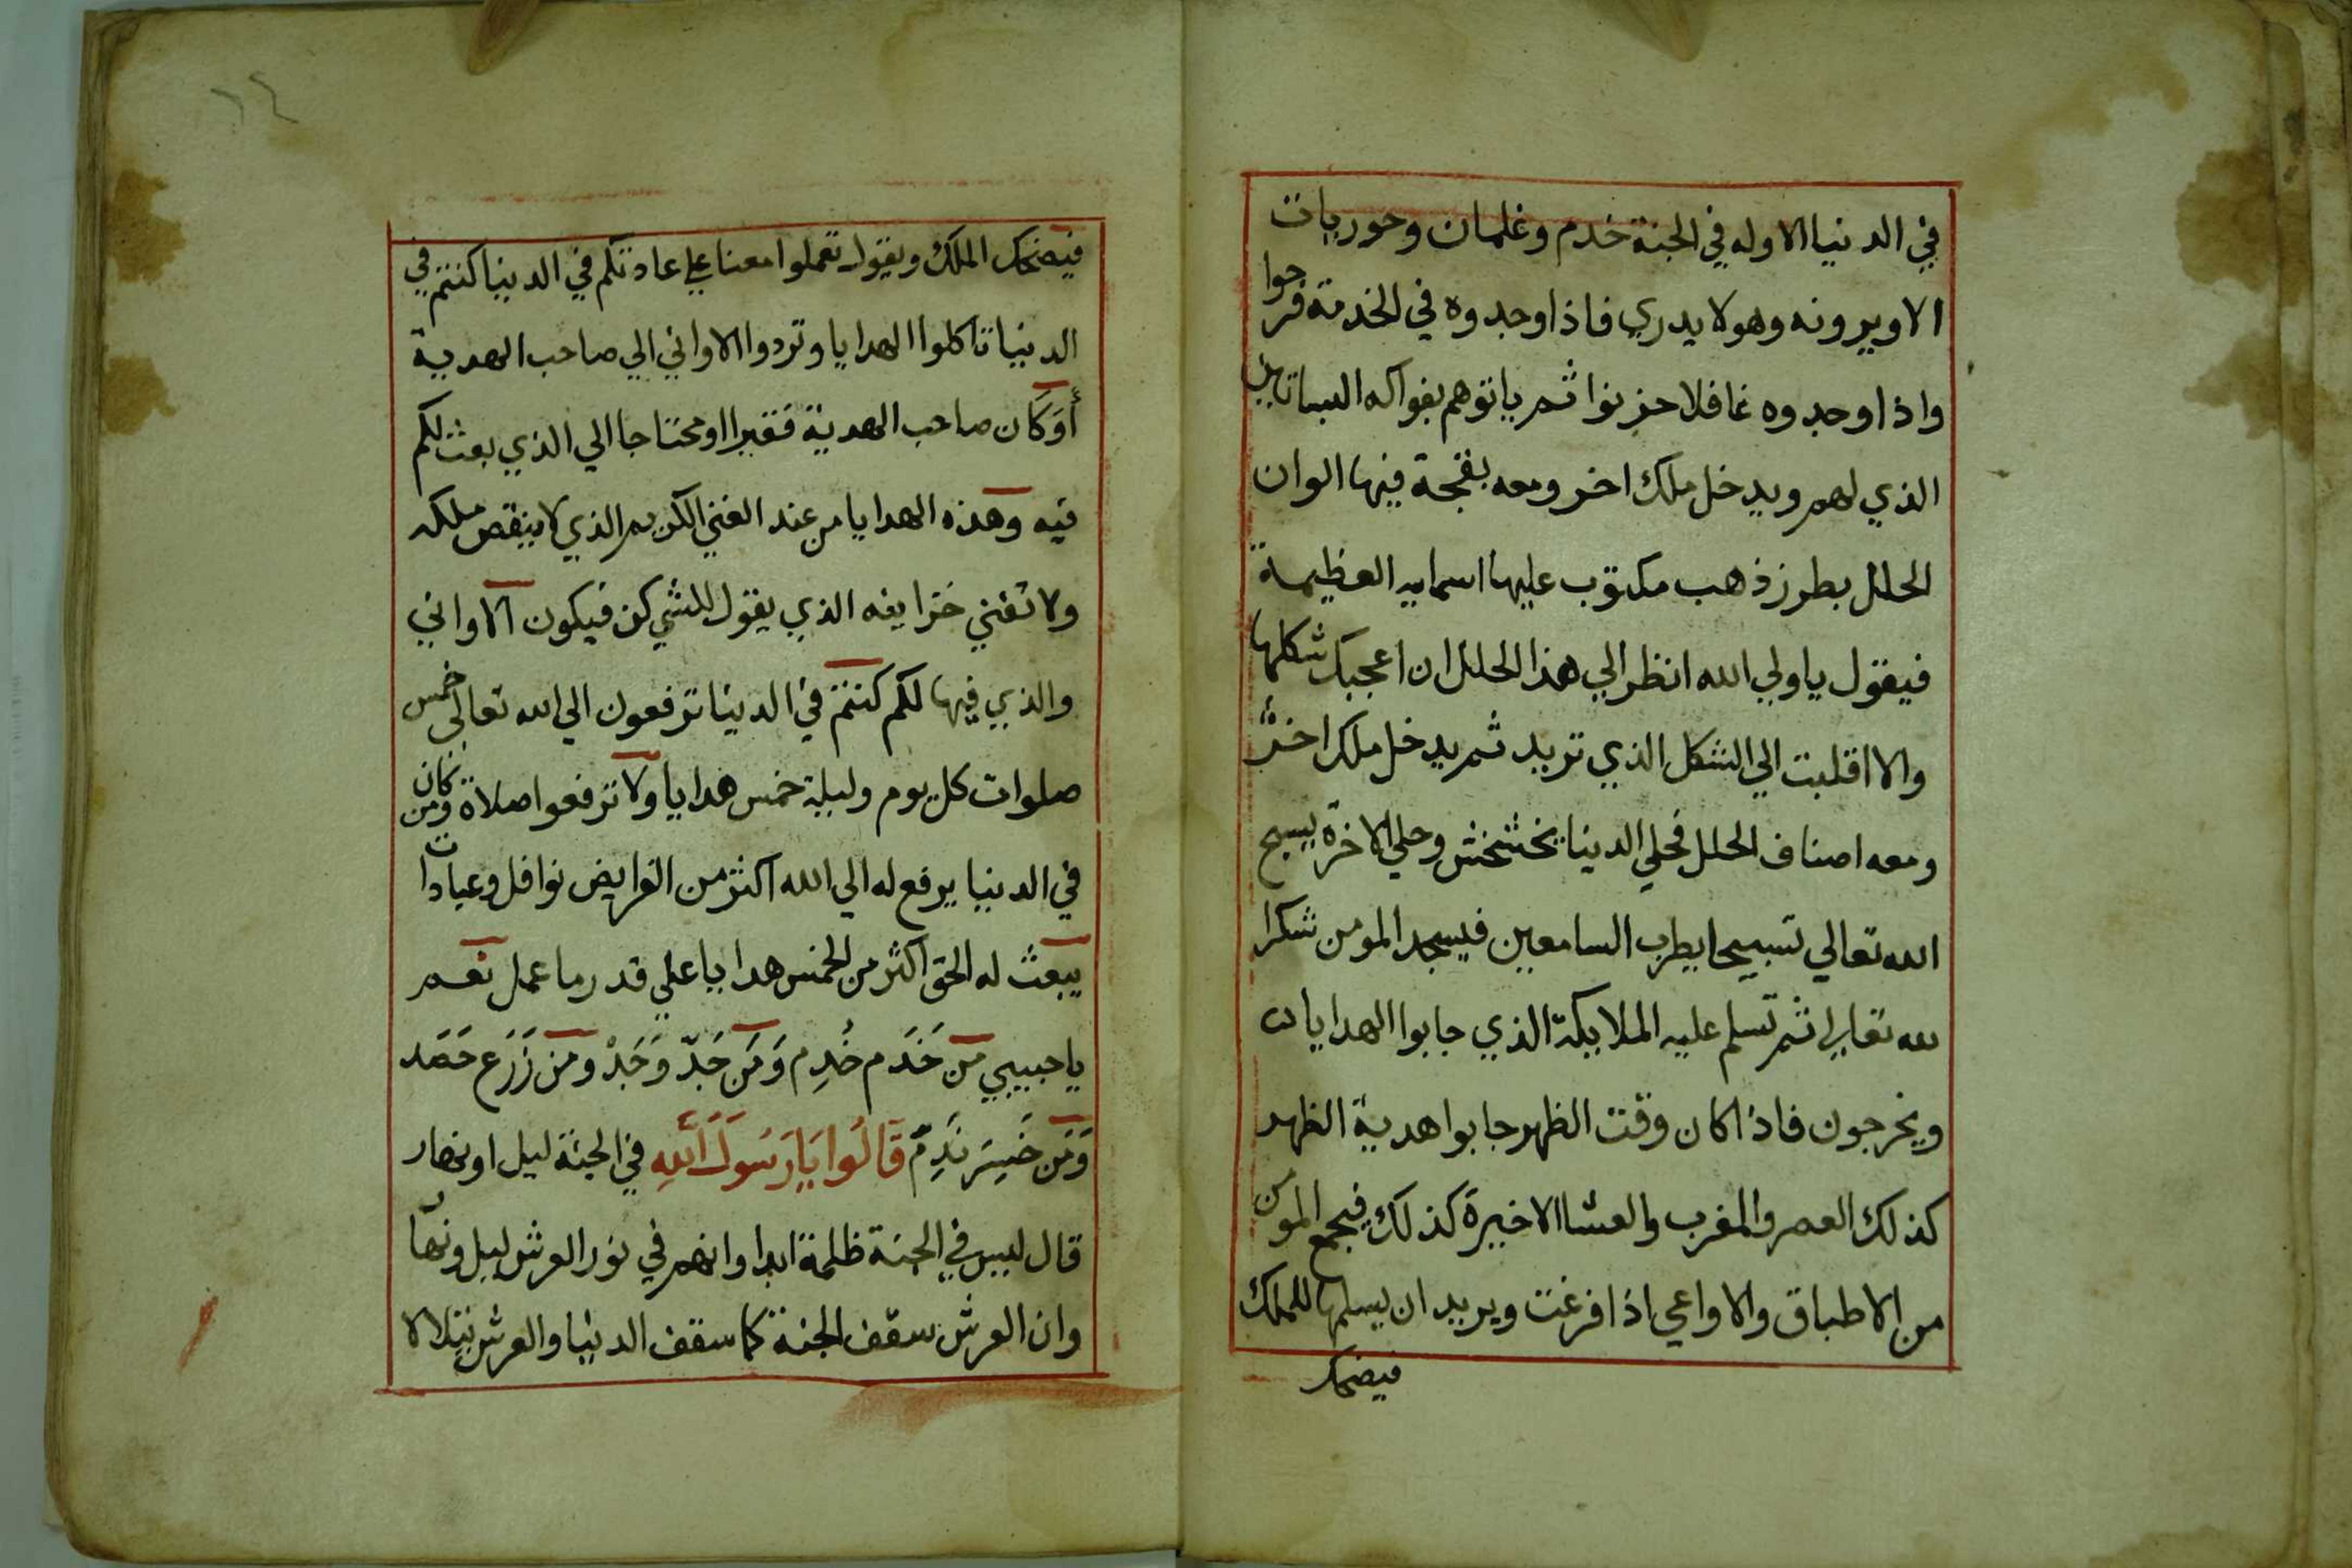 في الدنيا الا وله في الجنة خدم وغلمان وحوريات
الا ويرونه وهو لا يدري فاذا وجدوه في الخدمة فرحوا
واذا وجدوه غافلا حزنوا ثم ياتوهم بفواكه البساتين
الذي لهم ويدخل ملك اخر ومعه بقجة فيها الوان
الحلل بطرز ذهب مكتوب عليها اسمايه العظيمة
فيقول يا ولي الله انظر الي هذا الحلل ان اعجبك شكلها
والا اقلبت الي الشكل الذي تريد ثم يدخل ملك اخر
ومعه اصناف الحلل فحلي الدنيا يخشخش وحلي الاخرة يسبح
الله تعالي تسبيحا يطرب السامعين فيسجد المومن شكرا
لله تعالي ثم تسلم عليه الملايكة الذي جابوا الهدايات
ويخرجون فاذا كان وقت الظهر جابوا هدية الظهر
كذلك العصر والمغرب والعشا الاخيرة كذلك فيجمع المومن
من الاطباق والاواعي اذا فرغت ويريد ان يسلمها للملك
فيضحك
١٤
فيضحك الملك ويقول تعملوا معنا علي عادتكم في الدنيا كنتم في
الدنيا تاكلوا الهدايا وتردوا الاواني الي صاحب الهدية
أوكان صاحب الهدية فقيرا او محتاجا الي الذي بعث لكم
فيه وهذه الهدايا من عند الغني الكريم الذي لا ينقص ملكه
ولا تفني خزاينه الذي يقول للشي كن فيكون الاواني
والذي فيها لكم كنتم في الدنيا ترفعون الي الله تعالي خمس
صلوات كل يوم وليلة خمس هدايا ولا ترفعوا صلاة ومن كان
في الدنيا يرفع له الي الله اكثر من الفرايض نوافل وعبادات
يبعث له الحق اكثر من الخمس هدايا علي قدر ما عمل نعم
يا حبيبي من خَدَم خُدِم وَمَن جَدّ وَجَدْ ومَن زَرَع حَصَد
وَمَن خَسِرَ نَدِمْ قَالُوا يَا رَسُولَ اللهِ في الجنة ليل او نهار
قال ليس في الجنة ظلمة ابدا وانهم في نور العرش ليل ونهار
وان العرش سقف الجنة كما سقف الدنيا والعرش يتلالا